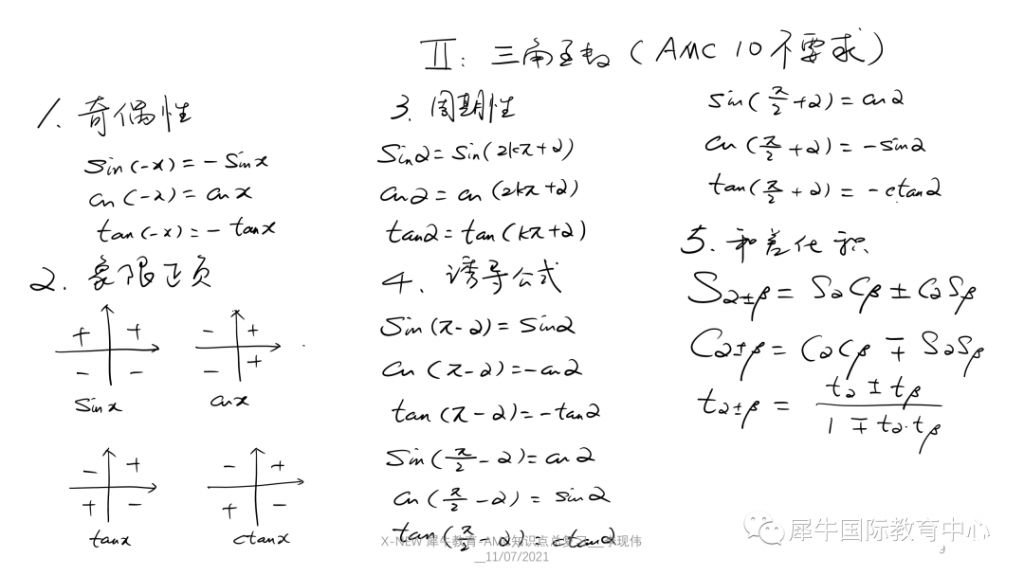 II: 三角函数(AMC 10不要求)
1. 奇偶性
sin(-x) = -sinx
cos(-x) = cosx
tan(-x) = -tanx
2. 象限正负
+ +
- -
sinx
- +
- +
cosx
- +
+ -
tanx
- +
+ -
ctanx
3. 周期性
sinα = sin(2kπ+α)
cosα = cos(2kπ+α)
tanα = tan(kπ+α)
4. 诱导公式
sin(π-α) = sinα
cos(π-α) = -cosα
tan(π-α) = -tanα
sin(π/2-α) = cosα
cos(π/2-α) = sinα
tan(π/2-α) = ctanα
sin(π/2+α) = cosα
cos(π/2+α) = -sinα
tan(π/2+α) = -ctanα
5. 和差化积
Sα±β = SαCβ ± CαSβ
Cα±β = CαCβ ∓ SαSβ
tα±β = (tα ± tβ)/(1 ∓ tα·tβ)
X-NEW 犀牛教育-AMC知识点总复习__李现伟
__11/07/2021
犀牛国际教育中心